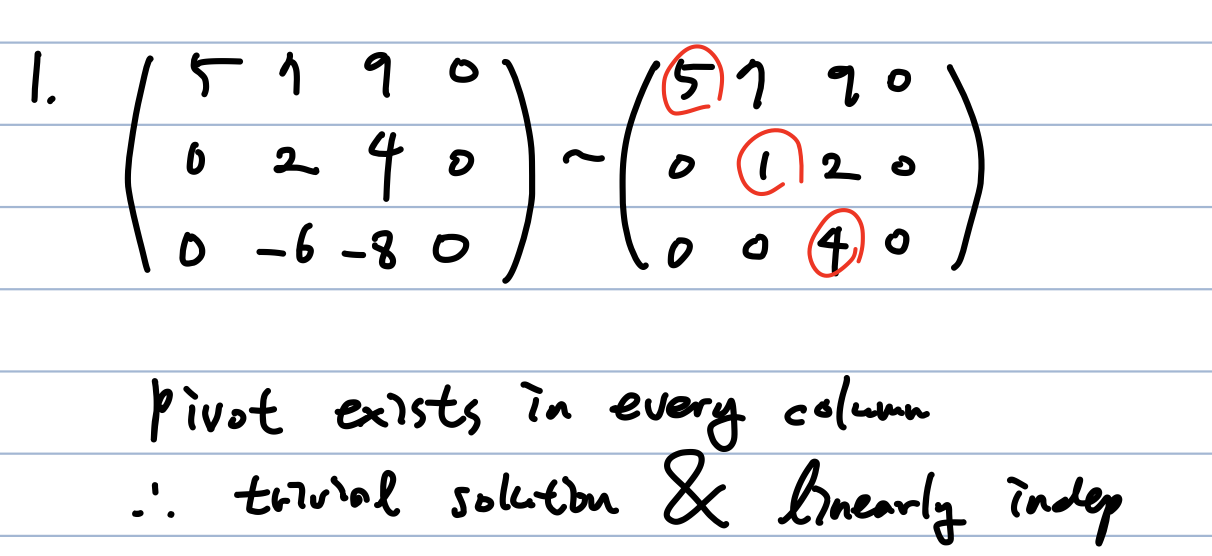 1. ( 5 7 9 0 ) ~ ( 5 7 9 0 )
( 0 2 4 0 ) ( 0 1 2 0 )
( 0 -6 -8 0 ) ( 0 0 4 0 )
pivot exists in every column
∴ trivial solution & linearly indep